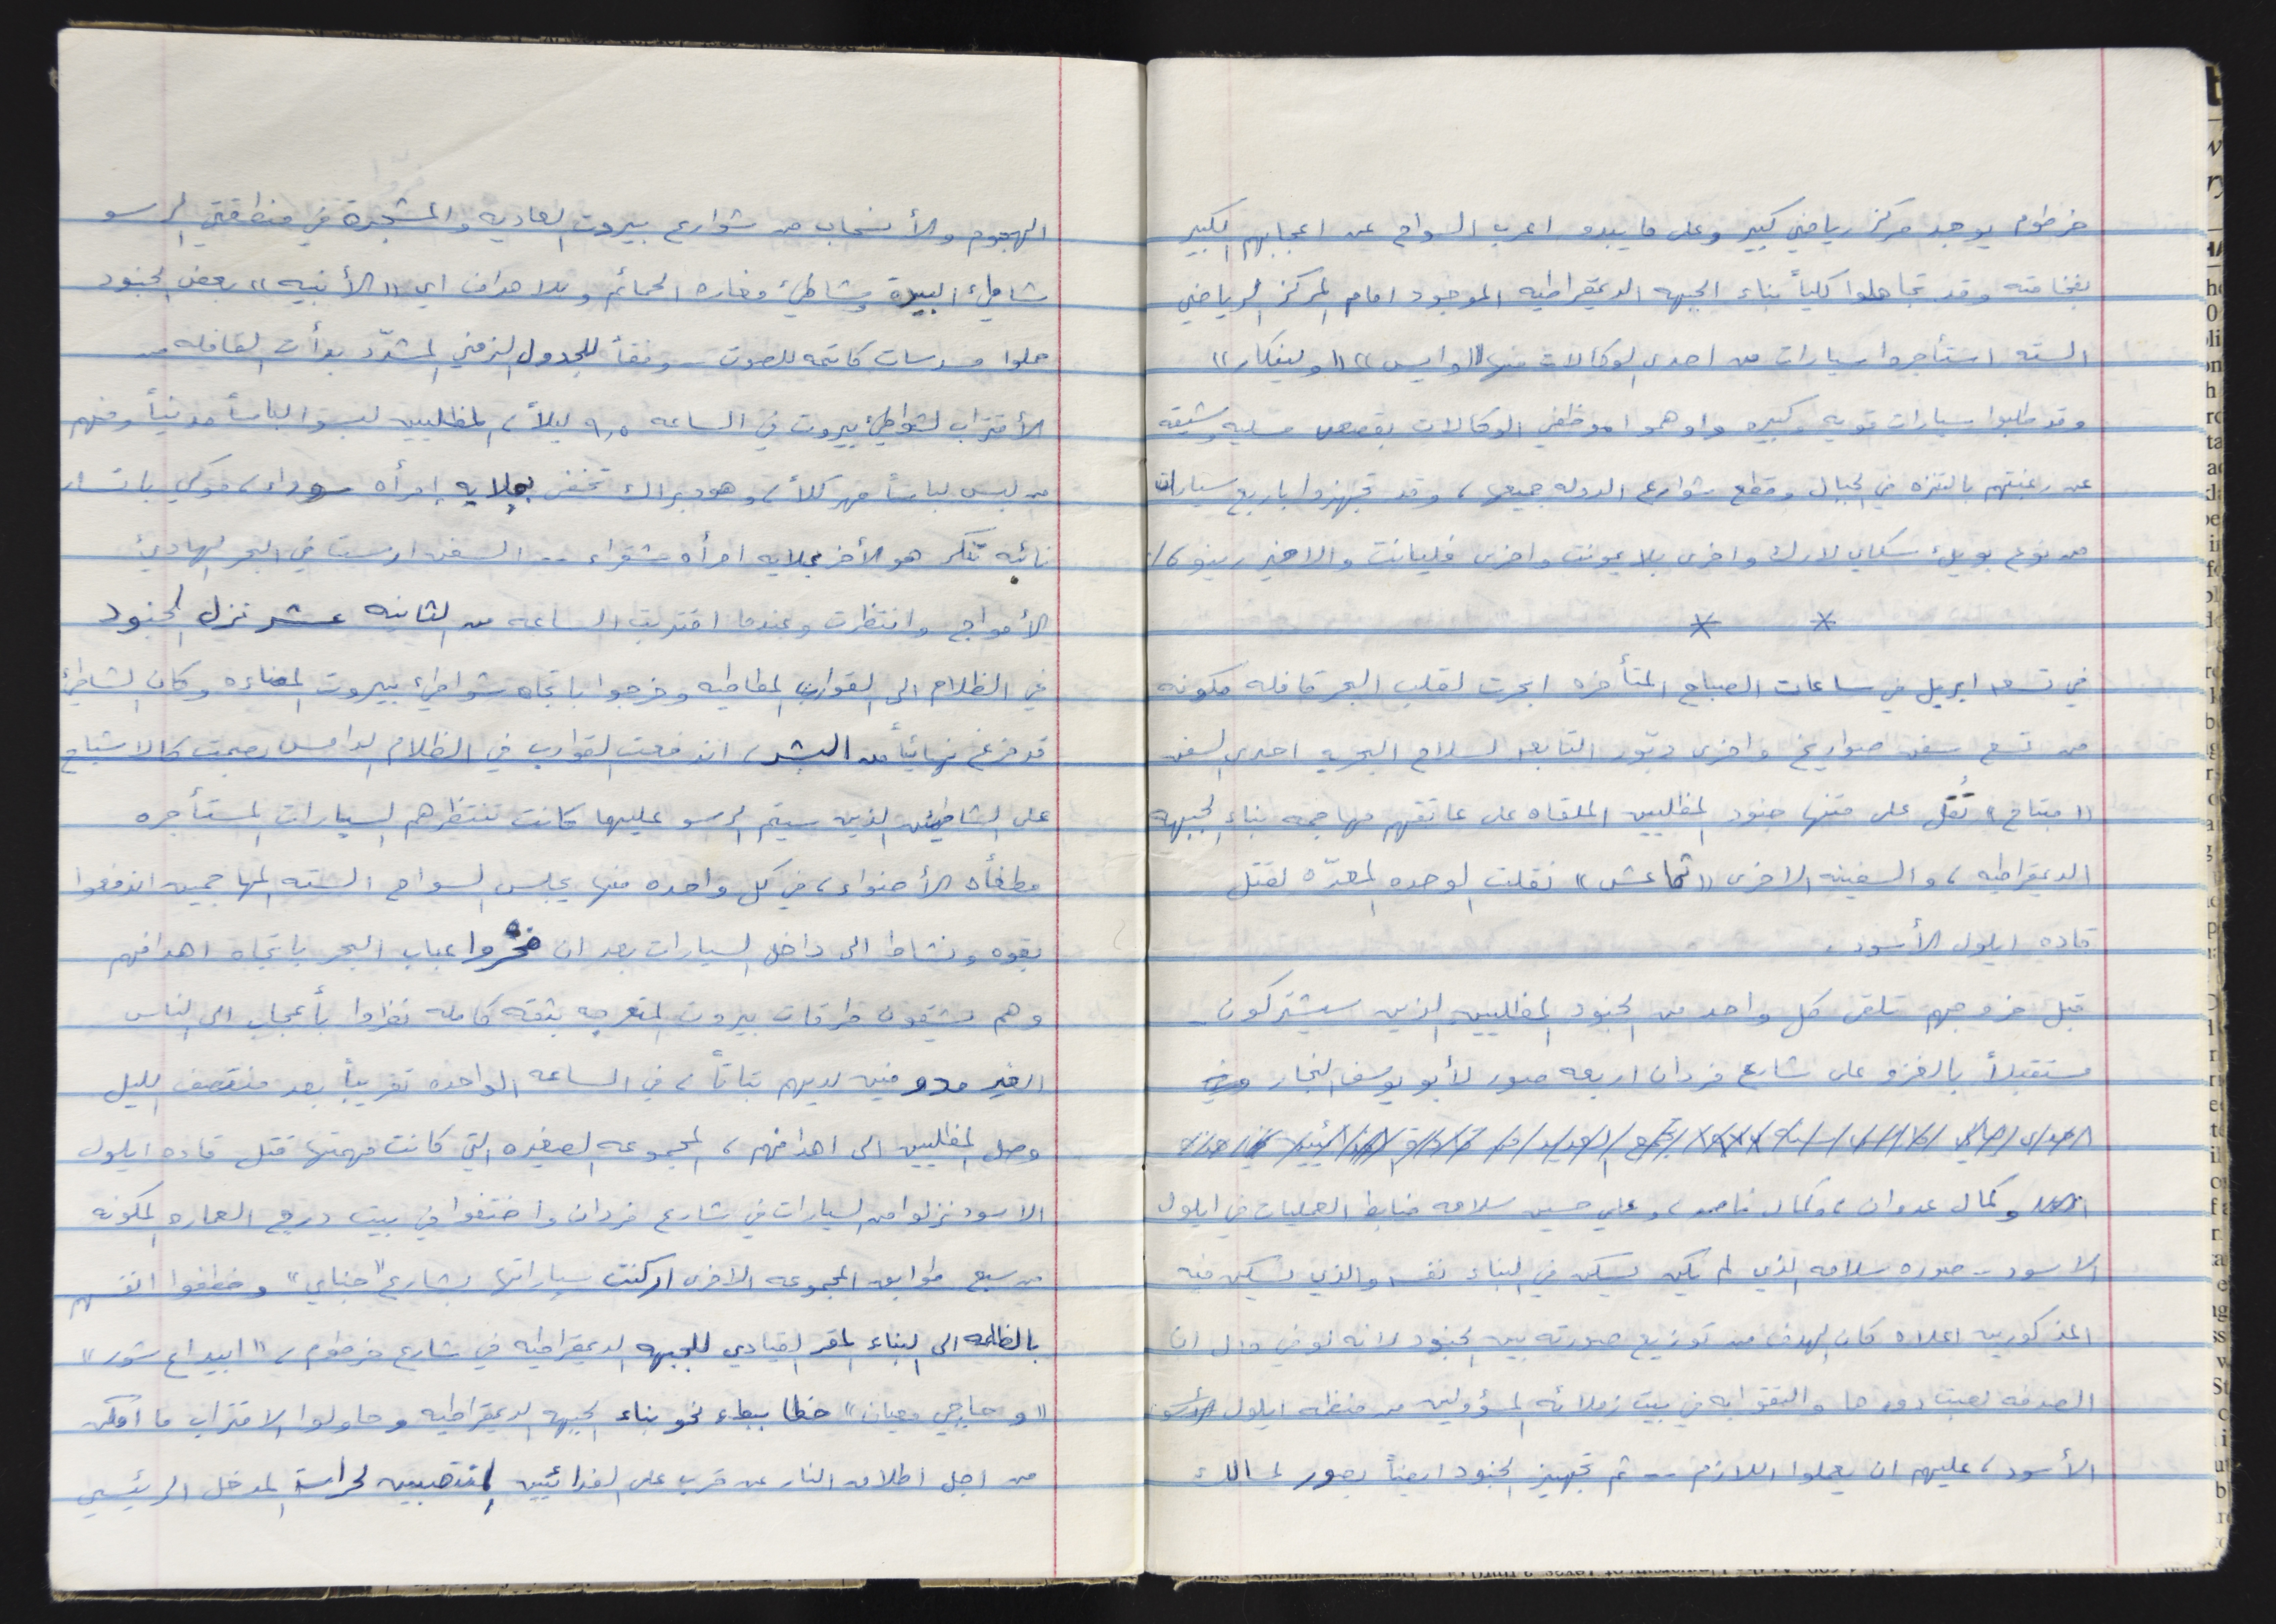 خرطوم يوجد مركز رياضي كبير وعلى ما يبدو اعرب السواح عن اعجابهم الكبير
بفخامته وقد تجاهلوا كلياً بناء الجبهه الديمقراطيه الموجود امام المركز الرياضي
السته استأجروا سيارات من احدى الوكالات منها "اوايس" "ولينكار"
وقد طلبوا سيارات قويه وكبيره واوهموا موظفي الوكالات بقصص مسليه وشيقه
عن رغبتهم بالتنزه في الجبال وقطع شوارع الدوله جميعها، وقد تجهزوا باربع سيارات
من نوع بويك سكاي لارك واخرى بلايموث واخرى فليانت والاخير رينو ١٦
* *
في تسعه ابريل في ساعات الصباح المتأخره ابحرت لقلب البحر قافله مكونه
من تسع سفن صواريخ واخرى دبور التابعه لسلاح البحريه احدى السفن
"مبتاح" تُقل على متنها جنود المظليين الملقاه على عاتقهم مهاجمة بناء الجبهه
الديمقراطيه، والسفينه الاخرى "تماعش" نقلت الوحده المعدّه لقتل
قاده ايلول الأسود.
قبل خروجهم تلقى كل واحد من الجنود المظليين الذين سيشتركون
مستقبلاً بالغزو على شارع فردان اربعه صور لأبو يوسف النجار
وكمال عدوان، وكمال ناصر، وعلي حسن سلامه ضابط العمليات في ايلول
الاسود .. صوره سلامه الذي لم يكن يسكن في البناء نفسه والذي يسكن فيه
المذكورين اعلاه كان الهدف من توزيع صورته بين الجنود لانه لو في حال ان
الصدفه لعبت دورها والتقوا به في بيت زملائه المسؤولين من منظمه ايلول
الأسود، عليهم ان يعملوا اللازم .. تم تجهيز الجنود ايضاً بصور لمسالك
الهجوم والأنسحاب من شوارع بيروت العاديه والمشجرة في منطقتي الرسو
شاطئ البيدة وشاطئ مغاره الحمائم وبلا هداف اي "الأبنيه" بعض الجنود
حملوا مسدسات كاتمه للصوت .. وفقاً للجدول الزمني المشدّد بدأت القافله من
الأقتراب لشواطئ بيروت في الساعه ٩,٥ ليلاً، المظليين لبسوا لباساً مدنياً ومنهم
من لبس لباساً مهركلاً، وهود براك تخفى بملايه إمرأه سوداء، موكي باتسار
نائبه تنكر هو الأخر بملايه امرأه شقراء .. السفن ارست في البحر الهادئ
الأمواج وانتظرت وعندما اقتربت الساعه من الثانيه عشر نزل الجنود
في الظلام الى القوارب المطاطيه وخرجوا باتجاه شواطئ بيروت المضاءه وكان الشاطئ
قد فرغ نهائياً من البشر، اندفعت القوارب في الظلام الدامس بصمت كالاشباح
على الشاطئين الذين سيتم الرسو عليهما كانت تنتظرهم السيارات المستأجره
مطفأه الأضواء، في كل واحده منها يجلس السواح السته المهاجمين اندفعوا
بقوه ونشاط الى داخل السيارات بعد ان مخروا عباب البحر باتجاه اهدافهم
وهم يشقون طرقات بيروت المتعرجه بثقه كامله نظروا بأعجاب الى الناس
الغير مدو فين لديهم بتاتاً، في الساعه الواحده تقريباً بعد منتصف الليل
وصل المظليين الى اهدافهم، المجموعه الصغيره التي كانت مهمتها قتل قاده ايلول
الاسود نزلوا من السيارات في شارع فردان واختفوا في بيت درج العماره المكونه
من سبع طوابق المجموعه الاخرى اركنت سياراتها بشارع "جناي" وخطفوا انفسهم
بالظلمه الى البناء المقر القيادي للجبهه الديمقراطيه في شارع خرطوم، "ابيداع شور"
"وحاجي معيان" خطا ببطء نحو بناء الجبهه الديمقراطيه وحاولوا الاقتراب ما امكن
من اجل اطلاق النار عن قرب على الفدائيين المنتصبين لحراسة المدخل الرئيسي